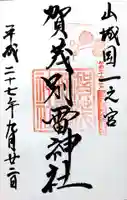 山城国一之宮
賀茂別雷神社
平成二十七年九月廿二日